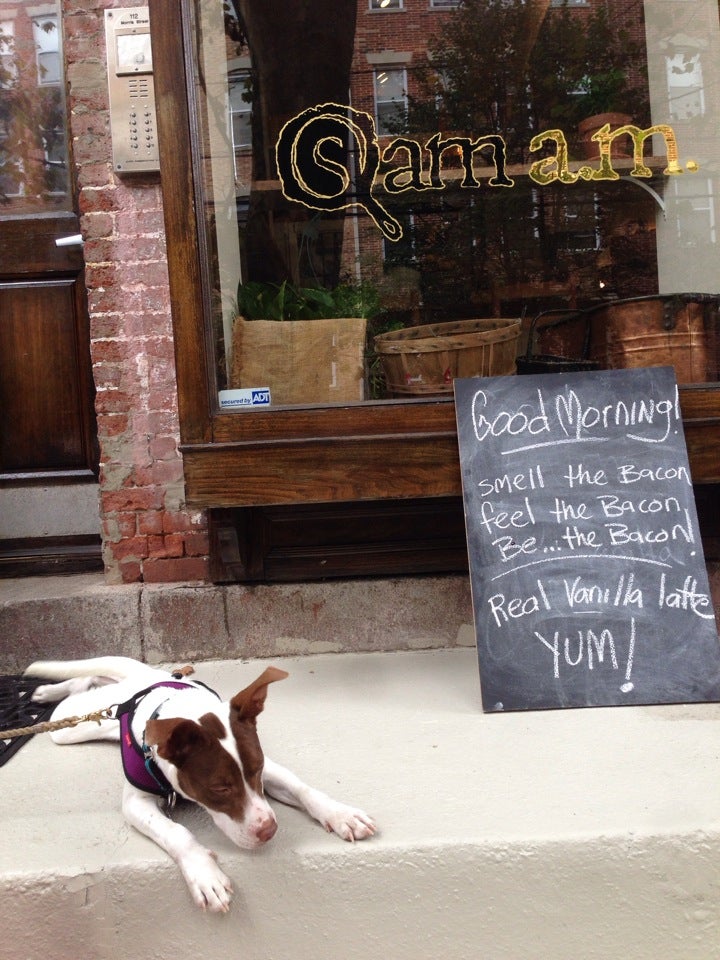 112
Morris Street
Sam a.m.
secured by ADT
Good Morning!
smell the Bacon
feel the Bacon,
Be...the Bacon!
Real Vanilla latte
YUM!